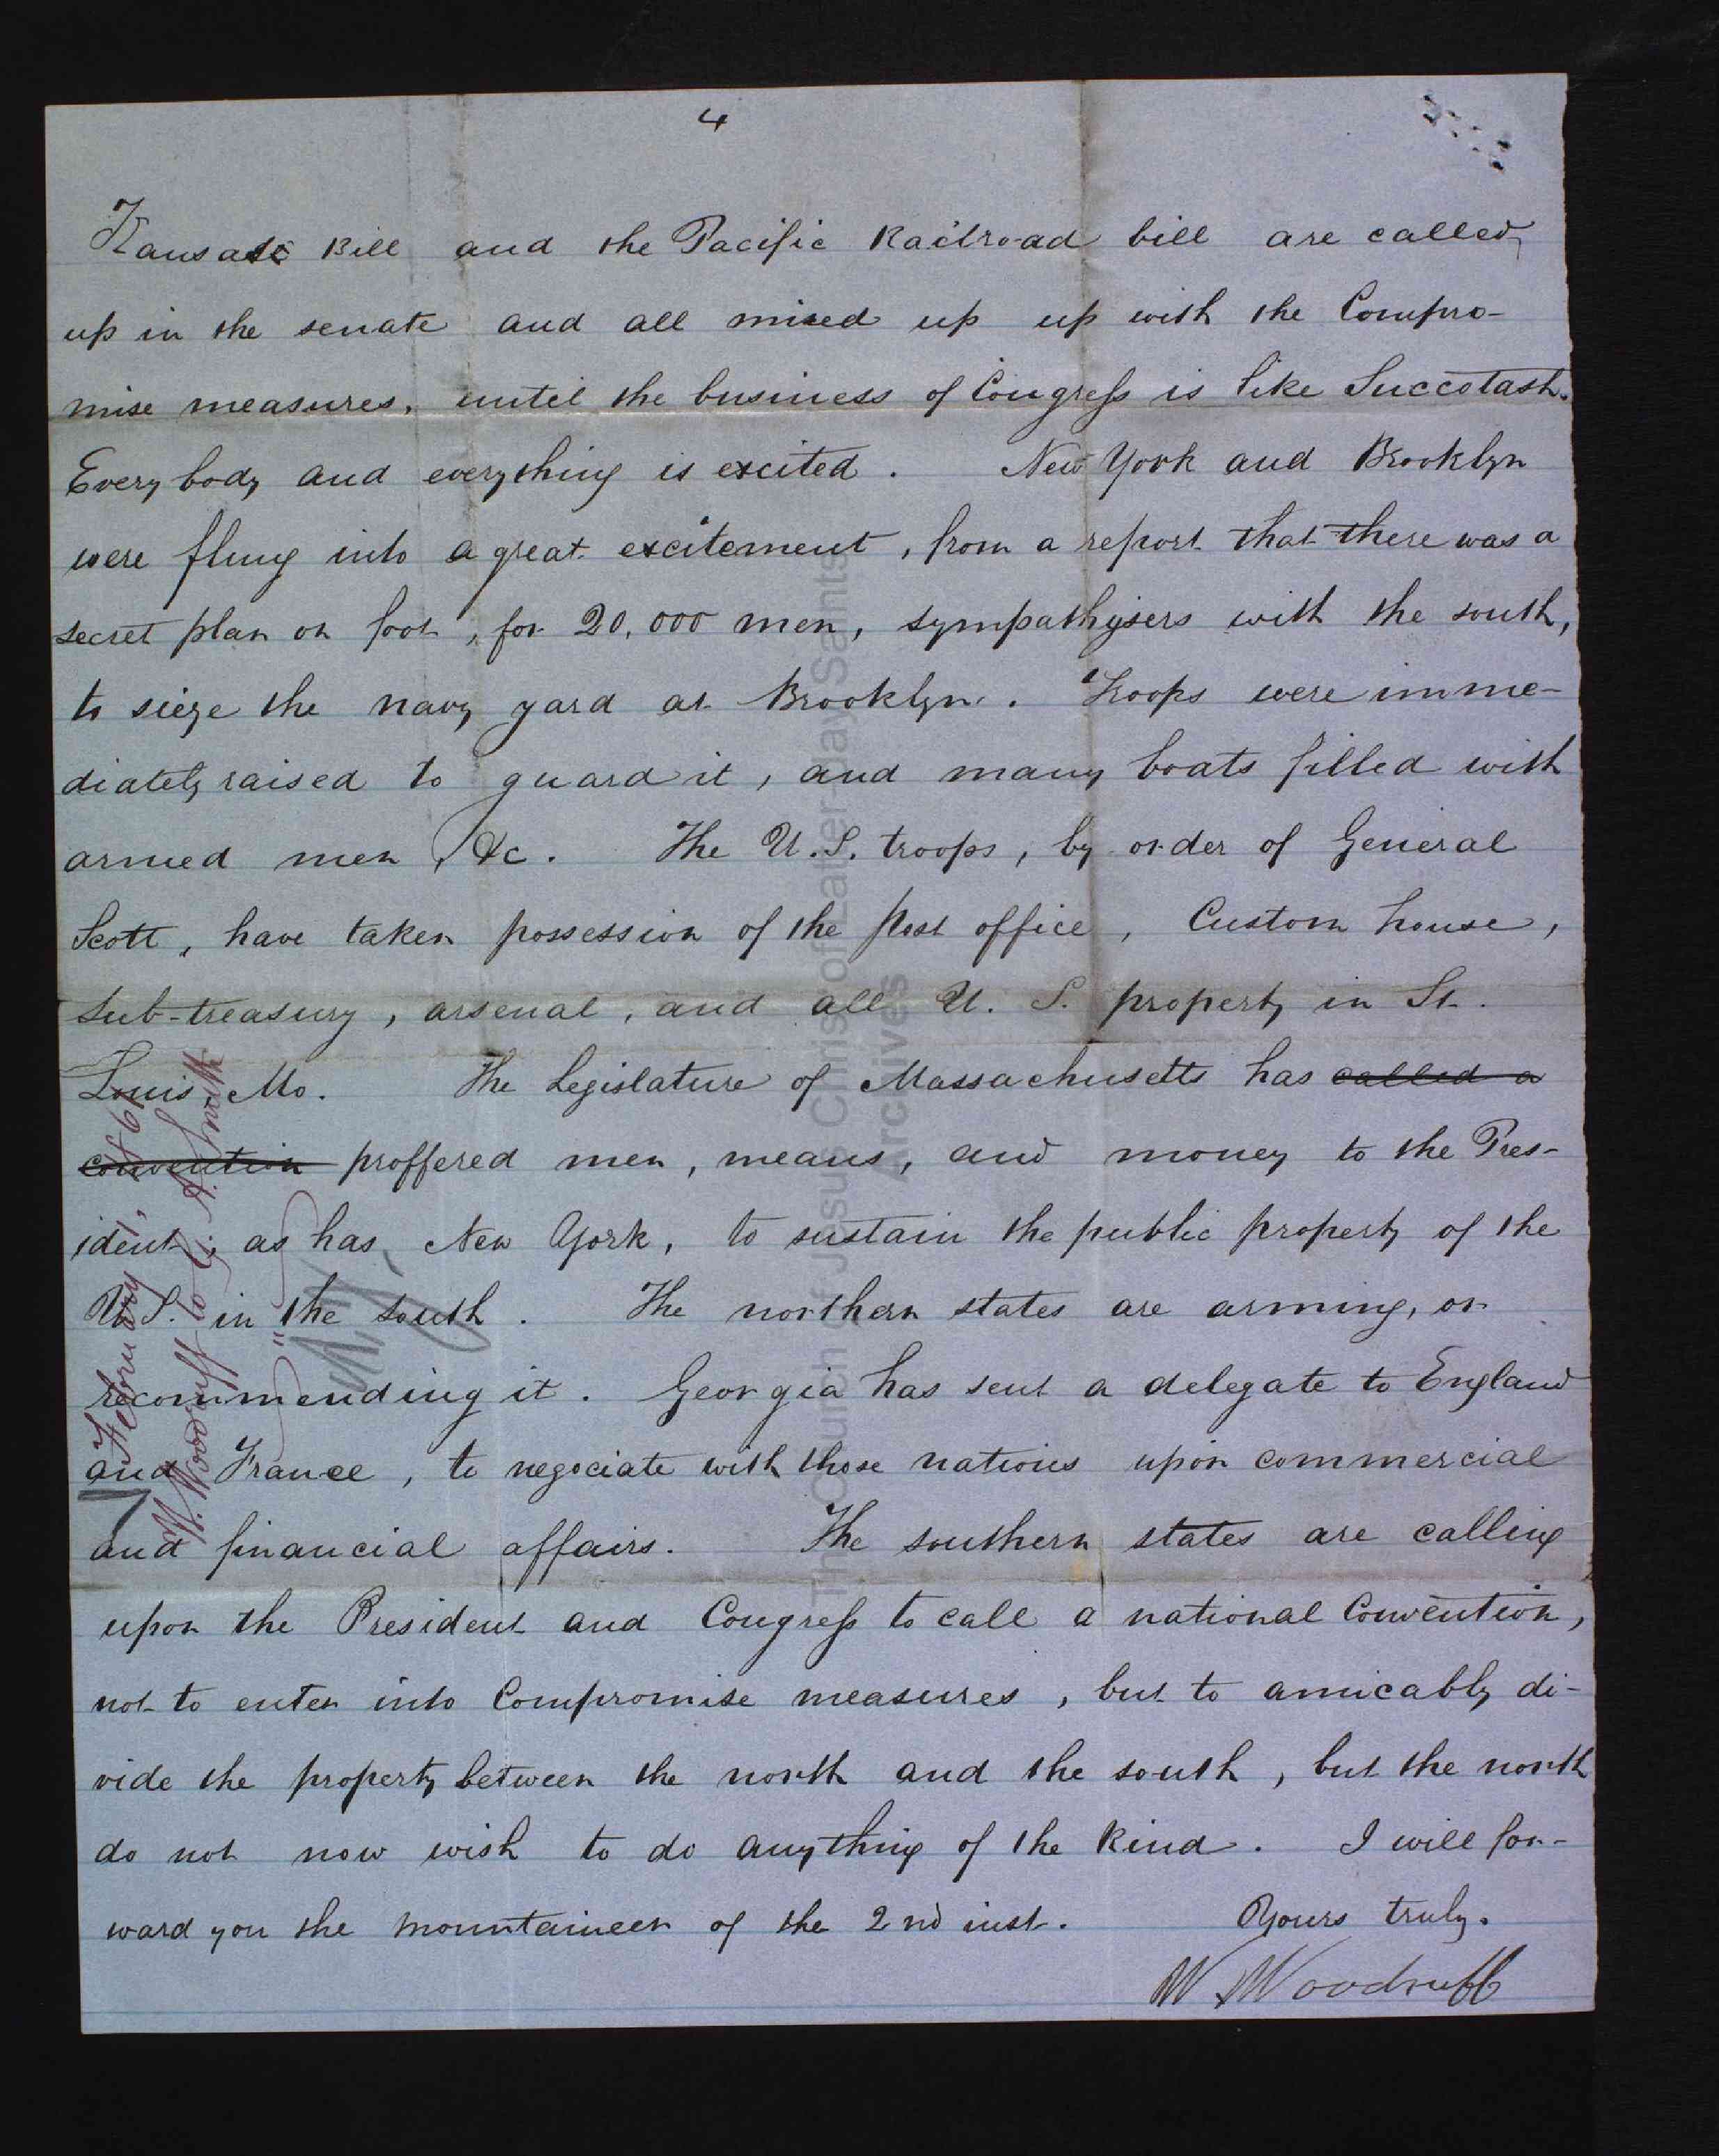 4
Kansas Bill and the Pacific Railroad bill are called
up in the senate and all mixed up up with the Compro-
mise measures, until the business of Congress is like Succotash.
Every body and everything is excited. New York and Brooklyn
were flung into a great excitement, from a report that there was a
secret plan on foot, for 20,000 men, sympathysers with the south,
to sieze the navy yard at Brooklyn. Troops were imme-
diately raised to guard it, and many boats filled with
armed men, &c. The U.S. troops, by order of General
Scott, have taken possession of the post office, Custom house,
sub-treasury, arsenal, and all U. S. property in St.
Louis, Mo. The Legislature of Massachusetts has called a
convention proffered men, means, and money to the Pres-
ident, as has New York, to sustain the public property of the
U.S. in the south. The northern states are arming, or
recommending it. Georgia has sent a delegate to England
and France, to negociate with those nations upon commercial
and financial affairs. The southern states are calling
upon the President and Congress to call a national Convention,
not to enter into Compromise measures, but to amicably di-
vide the property between the north and the south, but the north
do not now wish to do anything of the kind. I will for-
ward you the mountaineer of the 2nd inst. Yours truly.
W Woodruff
February 1, 1861
W. Woodruff to G. A. Smith
The Church of Jesus Christ of Latter-day Saints
Archives